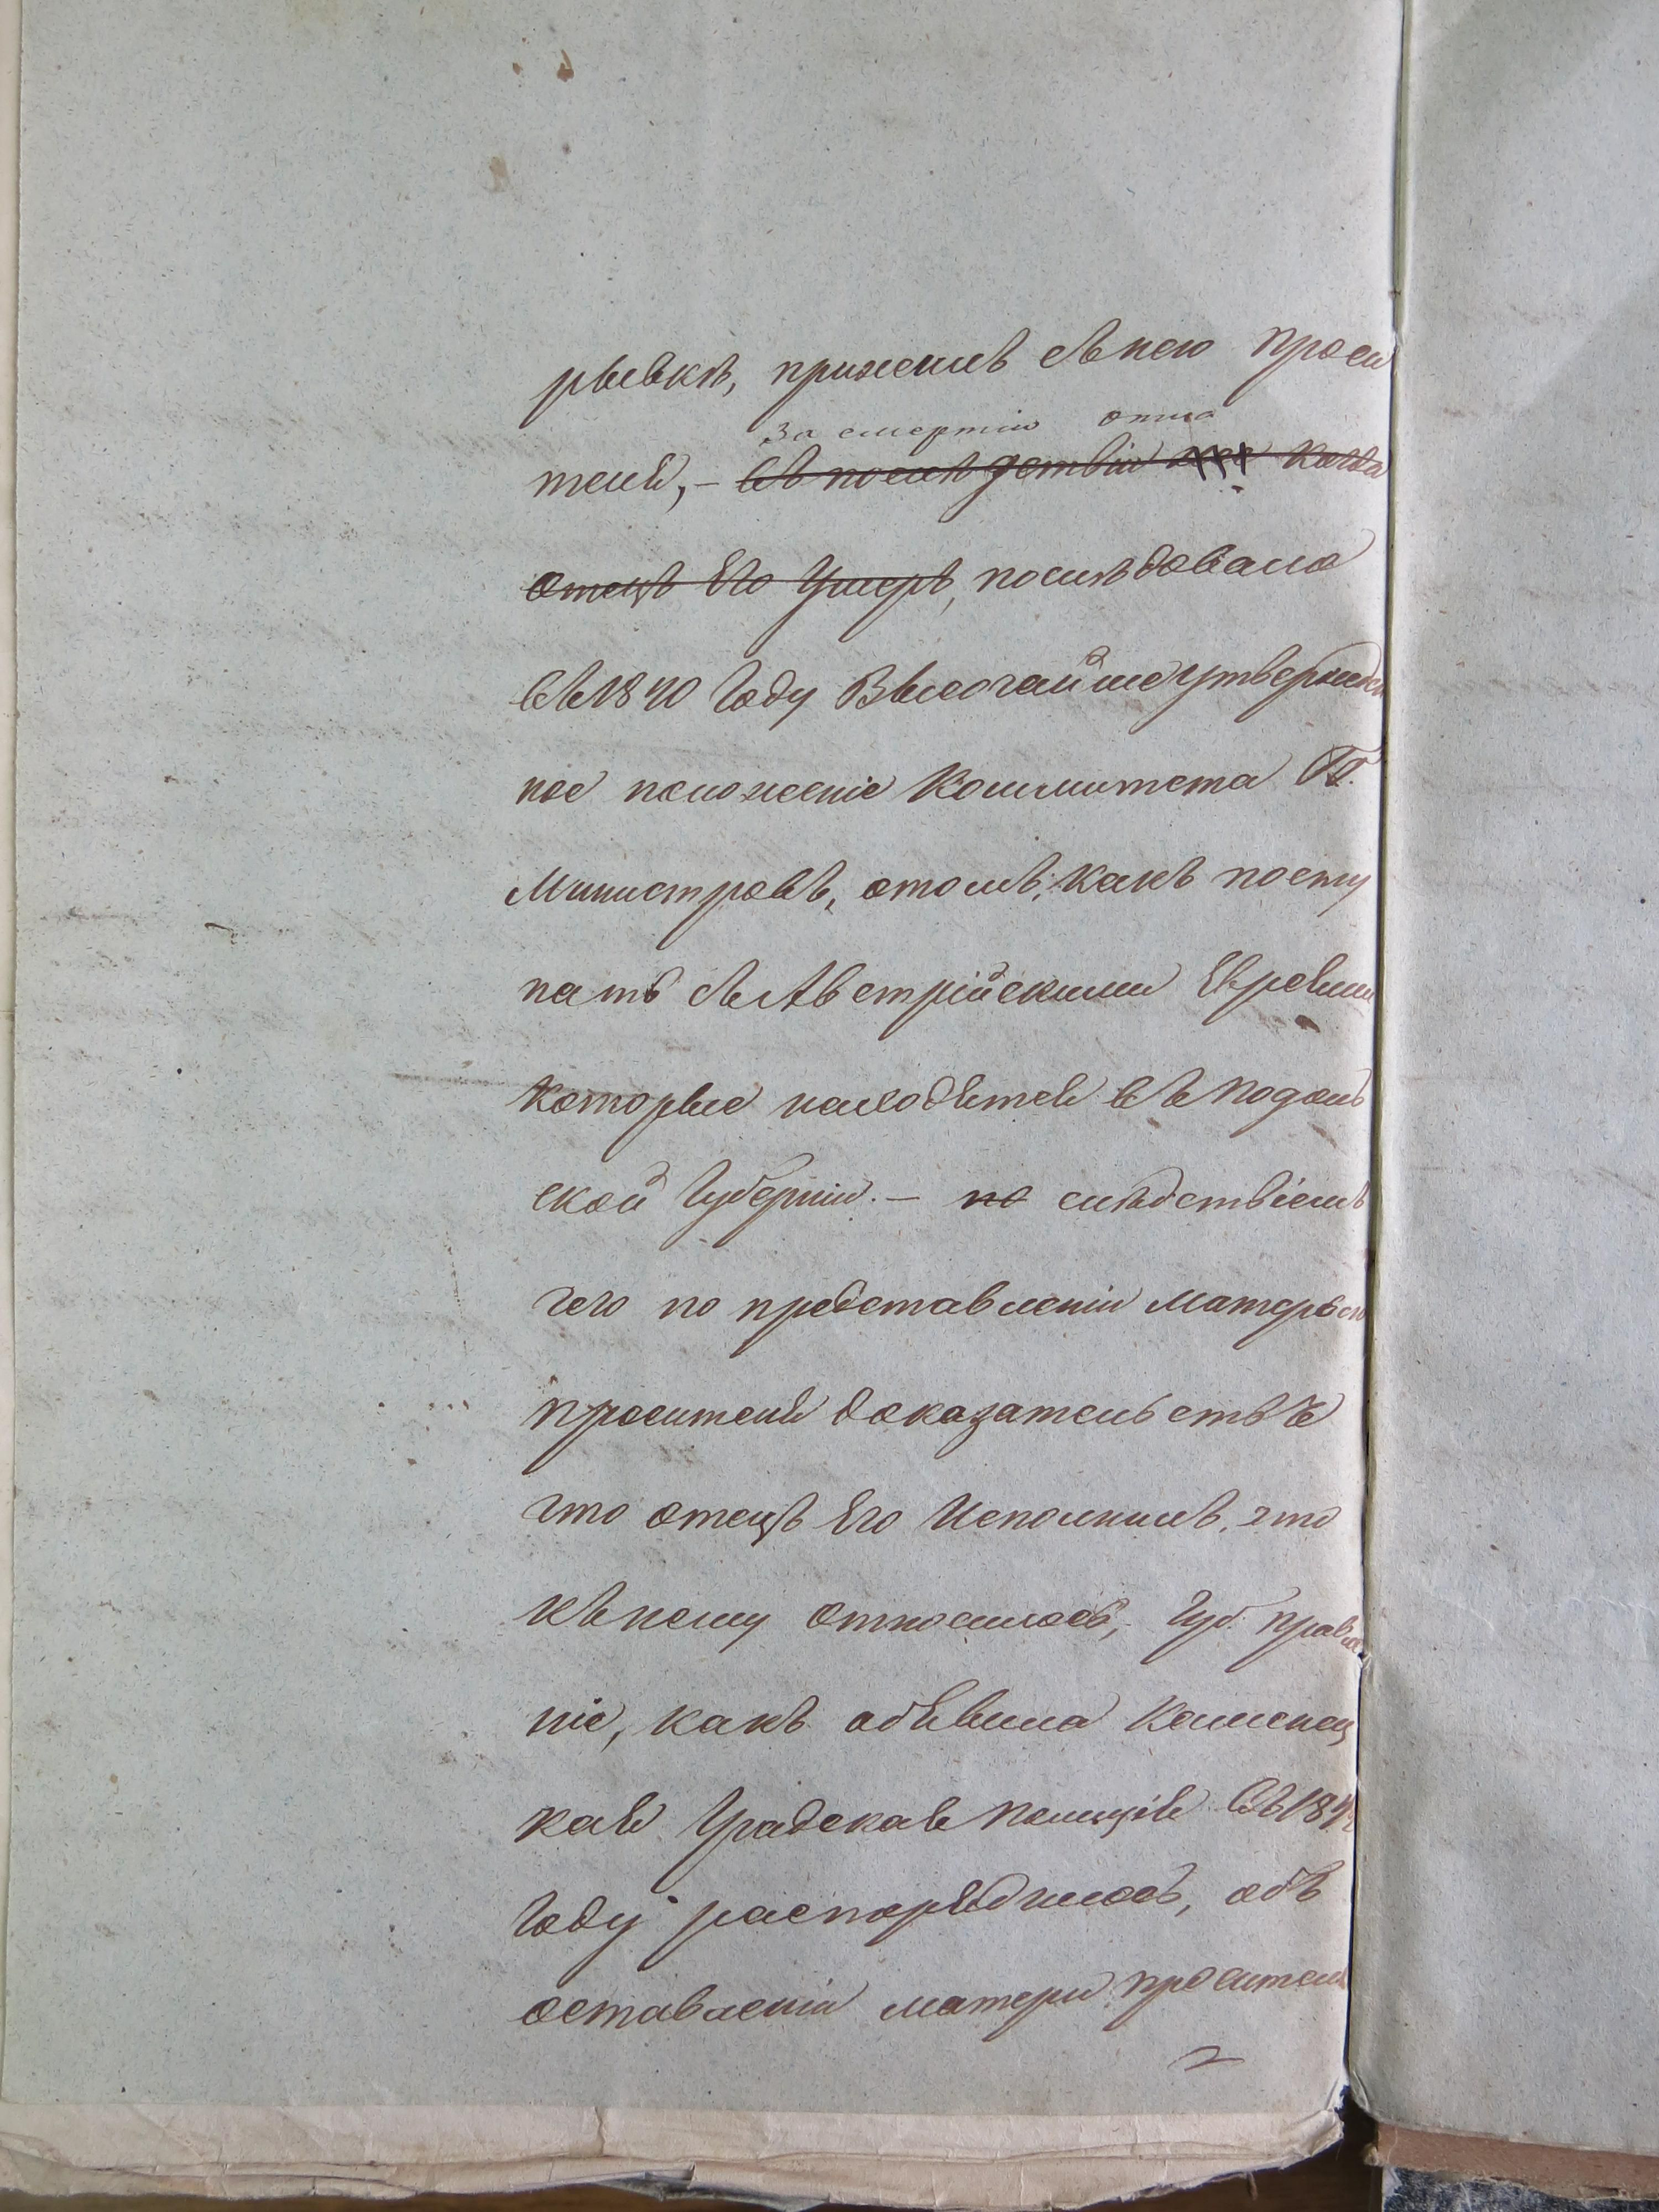 рывкѣ, прижилъ съ нею проси
за смертію отца
теля, – въ послѣдствіи когда
отецъ Его Умеръ, послѣдовало
въ 1840 Году Высочайше утвержден
ное положеніе Коммитета ГГ.
Министровъ, отомъ, какъ посту
пать съ Австрійскими Евреями
которые находятся въ Подоль
ской Губерніи. – по слѣдствіемъ
чего по представленіи матерью
просителя доказательствъ
что отецъ Его Исполнилъ, что
къ нему относилось, Губ. Правле
ніе, какъ объявила Каменец
кая Градская Полиція въ 184
Году распорядилось, объ
оставленіи матери просителя